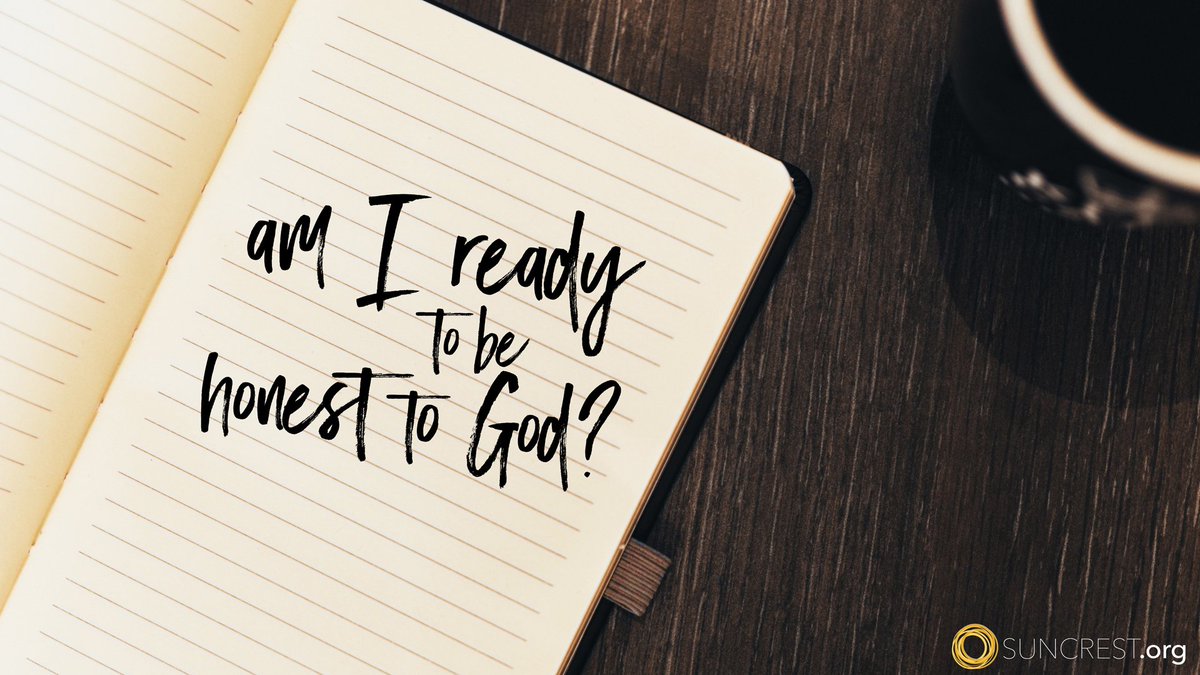 am I ready
to be
honest to God?
SUNCREST.org